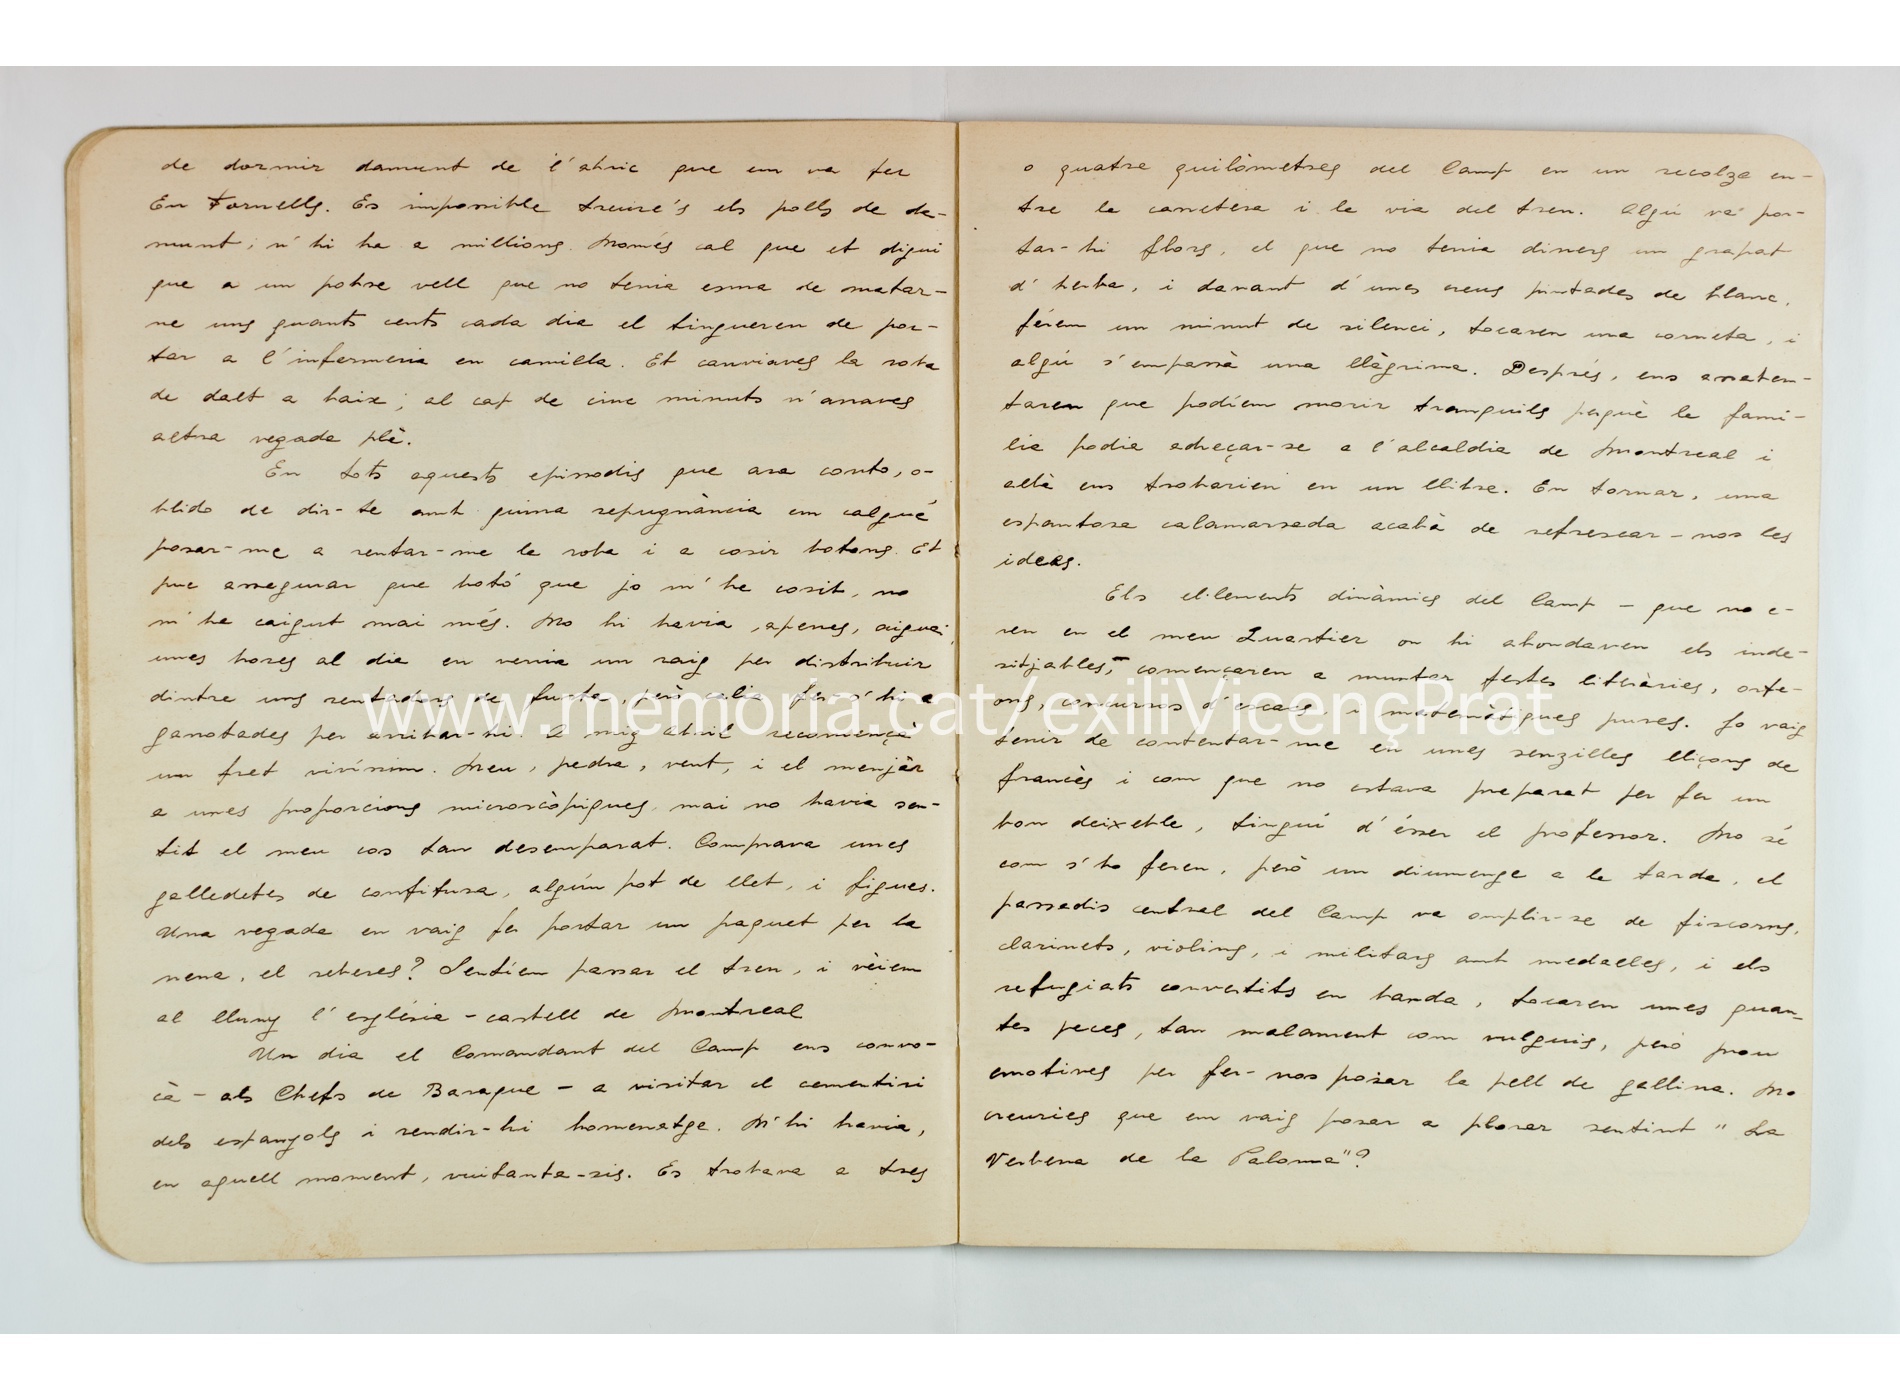 de dormir damunt de l'abric que em va fer
En Fornells. Es impossible treure's els polls de da-
munt; n'hi ha a millions. Només cal que et digui
que a un pobre vell que no tenia esma de matar-
ne uns quants cents cada dia el tingueren de por-
tar a l'infermeria en camilla. Et canviaves la roba
de dalt a baix; al cap de cinc minuts n'anaves
altra vegada plè.
En tots aquests episodis que ara conto, o-
blido de dir-te amb quina repugnància em calgué
posar-me a rentar-me la roba i a cosir botons. Et
puc assegurar que botó que jo m'he cosit, no
m'ha caigut mai més. No hi havia, apenes, aigua;
unes hores al dia en venia un raig per distribuir
dintre uns rentadors de fusta, però calia fer-s'hi a
garrotades per arribar-hi. A mig abril recomençà
un fret vivíssim. Neu, pedra, vent, i el menjàr
a unes proporcions microscòpiques mai no havia sen-
tit el meu cos tan desemparat. Comprava unes
galledetes de confitura, algún pot de llet, i figues.
Una vegada en vaig fer portar un paquet per la
nena, el reberes? Sentíem passar el tren, i vèiem
al lluny l'església-castell de Montreal
Un dia el Comandant del Camp ens convo-
cà - als Chefs de Baraque - a visitar el cementiri
dels espanyols i rendir-hi homenatge. N'hi havia,
en aquell moment, vuitanta-sis. Es trobava a tres
o quatre quilòmetres del Camp en un recolze en-
tre la carretera i la via del tren. Algú va por-
tar-hi flors, el que no tenia diners un grapat
d'herba, i davant d'unes creus pintades de blanc,
férem un minut de silenci, tocaren una corneta, i
algú s'empassà una llàgrima. Després, ens assaben-
taren que podíem morir tranquils perquè la famí-
lia podia adreçar-se a l'alcaldia de Montreal i
allà ens trobarien en un llibre. En tornar, una
espantosa calamarsada acabà de refrescar-nos les
idees.
Els el·lements dinàmics del Camp - que no e-
ren en el meu Quartier on hi abondaven els inde-
sitjables, - començaren a muntar festes literàries, orfe-
ons, concursos d'escacs i matemàtiques pures. Jo vaig
tenir de contentar-me en unes senzilles lliçons de
francès i com que no estava preparat per fer un
bon deixeble, tinguí d'ésser el professor. No sé
com s'ho feren, però un diumenge a la tarda, el
passadis central del Camp va omplir-se de fiscorns,
clarinets, violins, i militars amb medalles, i els
refugiats convertits en banda, tocaren unes quan-
tes peces, tan malament com vulguis, però prou
emotives per fer-nos posar la pell de gallina. No
creuries que em vaig posar a plorar sentint "La
Verbena de la Paloma"?
www.memoria.cat/exiliVicençPrat